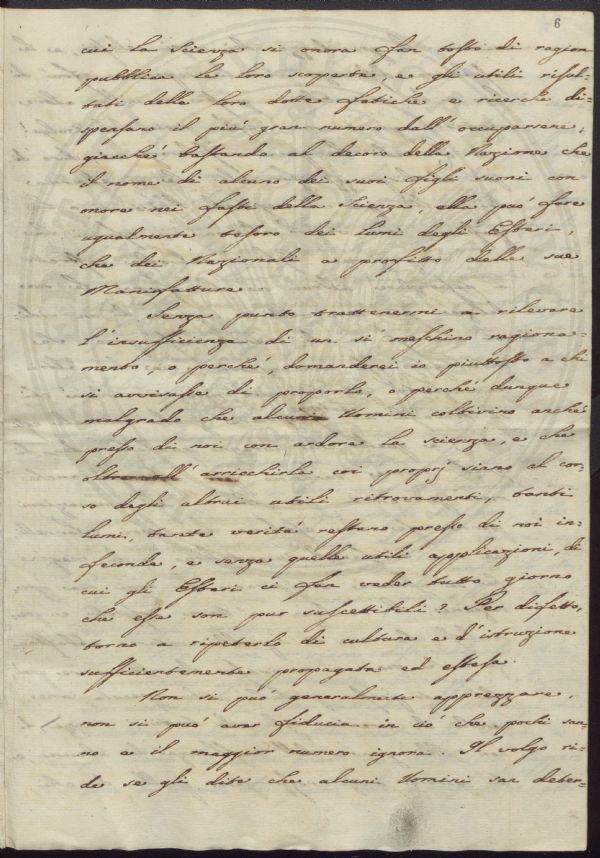 6
cui la Scienza si onora fan tosto di ragion
pubblica le loro scoperte, e gli utili risul-
tati delle loro dotte fatiche e ricerche di-
spensano il più gran numero dall'occuparsene;
giacchè bastando al decoro della Nazione che
il nome di alcuno dei suoi figli suoni con
onore nei fasti della Scienza, ella può fare
ugualmente tesoro dei lumi degli Esteri,
che dei Nazionali a profitto delle sue
Manifatture.
Senza punto trattenermi a rilevare
l'insufficienza di un sì meschino ragiona-
mento, o perchè, domanderei io piuttosto a chi
si avvisasse di proporlo, o perchè dunque
malgrado che alcuni Uomini coltivino anche
presso di noi con ardore la scienza, e che
oltre all'arricchirla coi proprj siano al cor-
so degli altrui utili ritrovamenti, tanti
lumi, tante verità restano presso di noi in-
feconde, e senza quelle utili applicazioni, di
cui gli Esteri ci fan veder tutto giorno
che esse son pur suscettibili? Per difetto,
torno a ripeterlo di cultura e d'istruzione
sufficientemente propagata ed estesa.
Non si può generalmente apprezzare,
non si può aver fiducia in ciò che pochi san-
no e il maggior numero ignora. Il volgo ri-
de se gli dite che alcuni Uomini san deter-